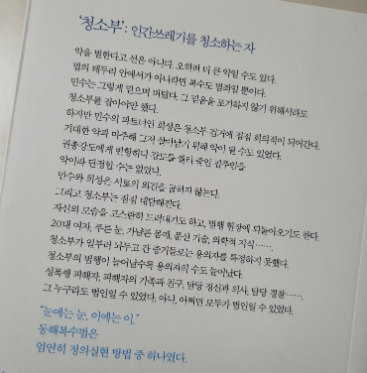 '청소부' : 인간쓰레기를 청소하는 자
악을 벌한다고 선은 아니다. 오히려 더 큰 악일 수도 있다.
법의 테두리 안에서가 아니라면 복수도 범죄일 뿐이다.
민수는 그렇게 믿으며 버텼다. 그 믿음을 포기하지 않기 위해서라도
청소부를 잡아야만 했다.
하지만 민수의 파트너인 희성은 청소부 검거에 점점 회의적이 되어간다.
거대한 악과 마주해 그저 살아남기 위해 악이 될 수도 있었다.
권총강도에게 빈항하다 강도를 찔러 죽인 김주인을
악이라 단정할 수는 없었다.
민수와 희성은 서로의 의견을 굽히지 않는다.
그리고 청소부는 점점 대담해진다.
자신의 모습을 고스란히 드러내기도 하고, 범행 현장에 되돌아오기도 한다.
20대 여자, 푸른 눈, 가냘픈 몸매, 문신 기술, 의학적 지식……
청소부가 일부러 놔두고 간 증거들로는 용의자를 특정하지 못했다.
청소부의 범행이 늘어날수록 용의자의 수도 늘어났다.
성폭행 피해자, 피해자의 가족과 친구, 담당 정신과 의사, 담당 경찰……
그 누구라도 범인일 수 있었다. 아니, 어쩌면 모두가 범인일 수 있었다.
"눈에는 눈, 이에는 이."
동해복수법은
엄연히 정의실현 방법 중 하나였다.